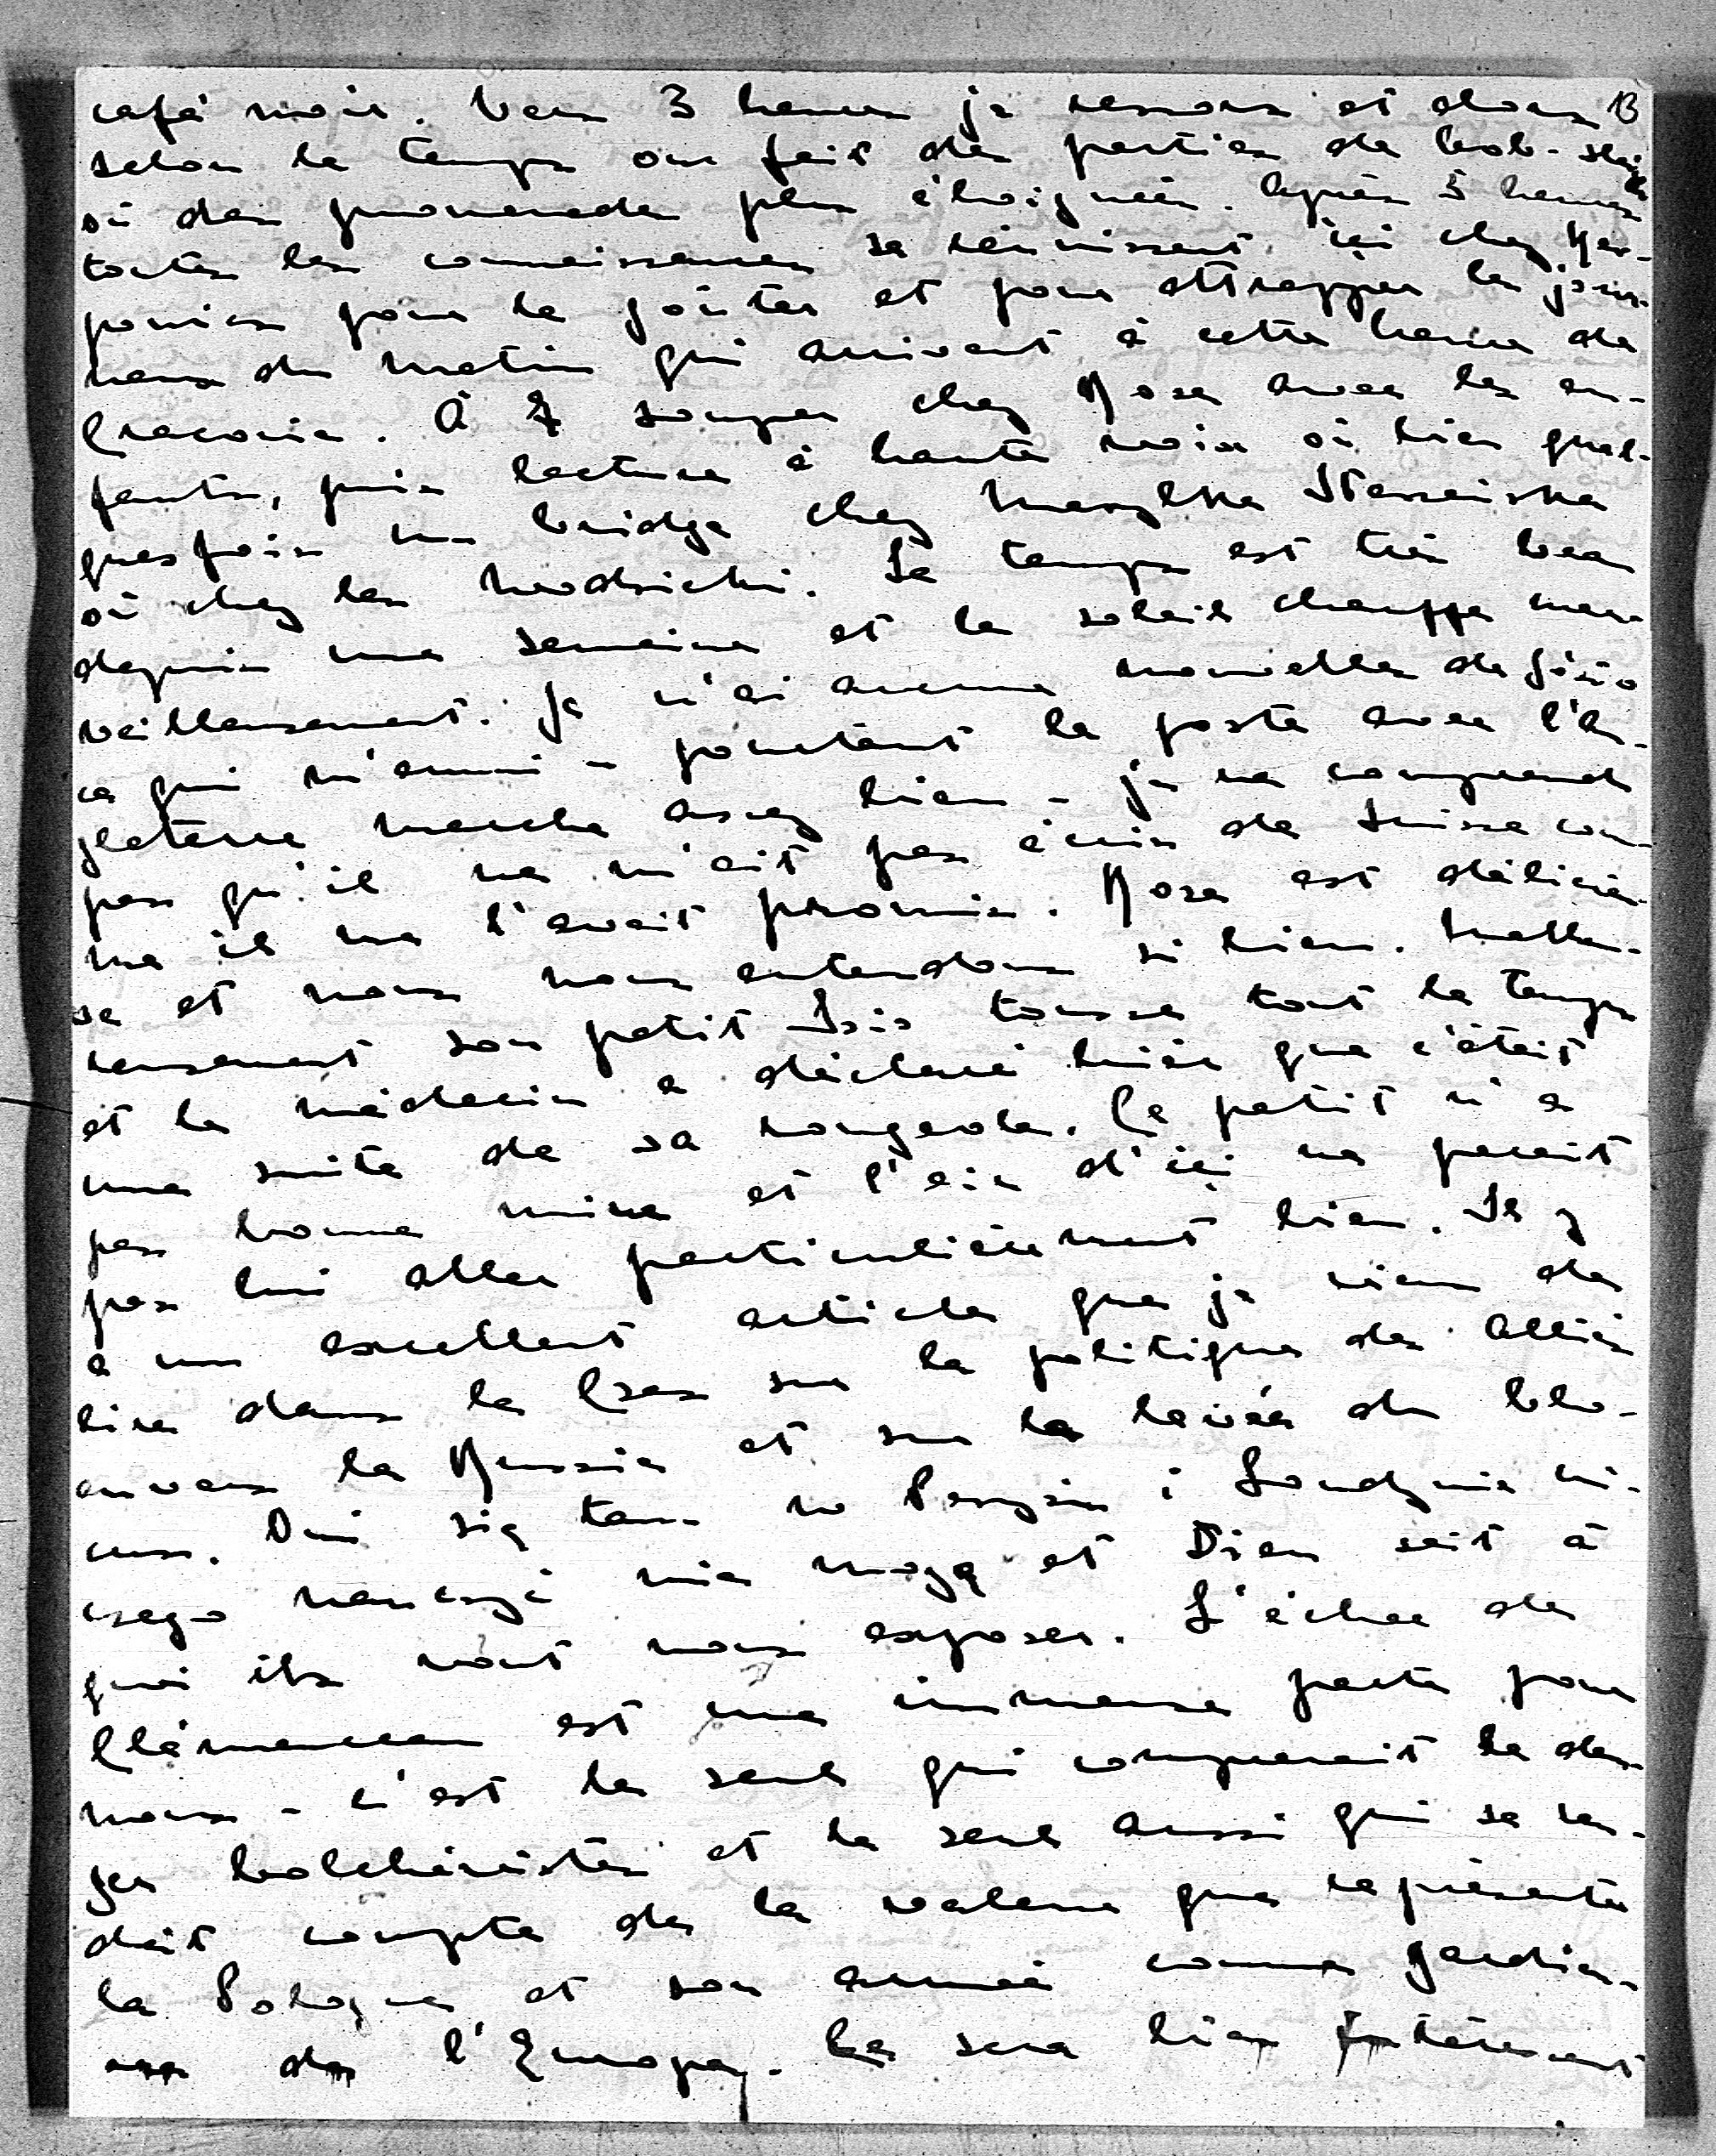 café noir. Vers 3 heures je ressors et alors 13
selon le temps on fait des parties de bob-sleigh
où des promenades plus éloignées. Après 5 heures
toutes les connaissances se réunissent ici chez Kar-
powicz pour le goûter et pour attrapper les jour-
naux du matin qui arrivent à cette heure de
Cracovie. À 7 souper chez Rose avec les en-
fants, puis lecture à haute voix où bien quel-
quesfois un bridge chez
où chez les Wodzicki. Le temps est très beau
depuis une semaine et le soleil chauffe mer-
veilleusement. Je n'ai aucune nouvelle de Józio
ce qui m'ennui – pourtant la poste avec l'An-
gleterre marche assez bien – je ne comprends
pas qu'il ne m'ait pas écris de Suisse com-
me il me l'avait promis. Rose est délicieu-
se et nous nous entendons si bien. Malheu-
reusement son petit Izio tousse tout le temps
et le médecin a déclaré hier que c'était
une suite de sa rougeole. Ce petit n'a
pas bonne mine et l'air d'ici ne parait
pas lui aller particulièrement bien. Il y
a un excellent article que je viens de
lire dans le Czas sur la politique des Alliés
envers la Russie et sur la levée du blo-
cus. Oni się tam w Paryżu i Londynie ni-
czego nauczyć nie mogą et Dieu sait à
quoi ils vont nous exposer. L'échec de
Clémenceau est une immense perte pour
nous – c'est le seul qui comprenait le dan-
ger bolchéviste et le seul aussi qui se ren-
dait compte de la valeur que représente
la Pologne et son armée comme gardien-
ne de l'Europe. Ce sera bien intéressant